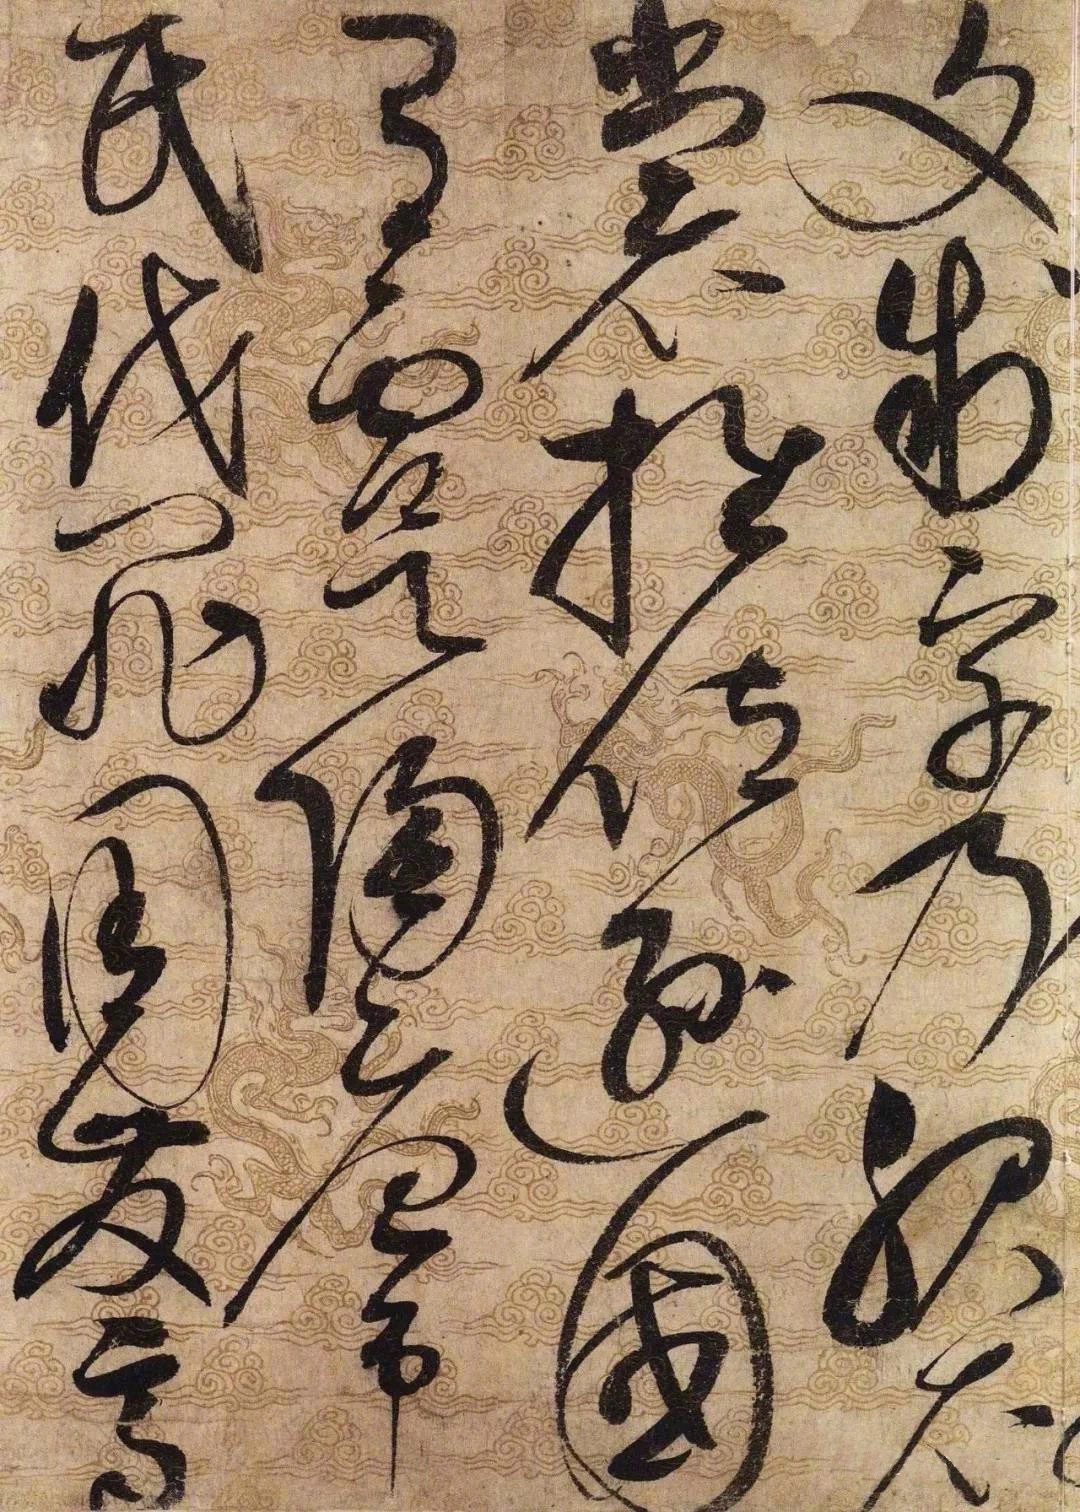 文制字乃服衣
裳推位逊國
有虞陶唐弔
民伐罪周發商